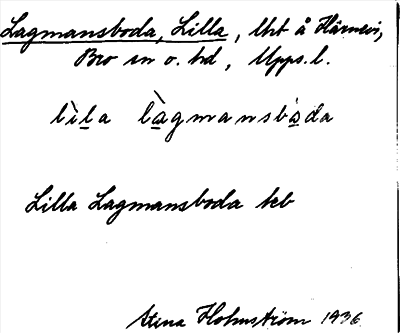 Lagmansboda, Lilla, lht å Härnevi,
Bro sn o. hd, Upps. l.
lìla làgmansbòda
Lilla Lagmansboda kb
Stina Holmström 1936